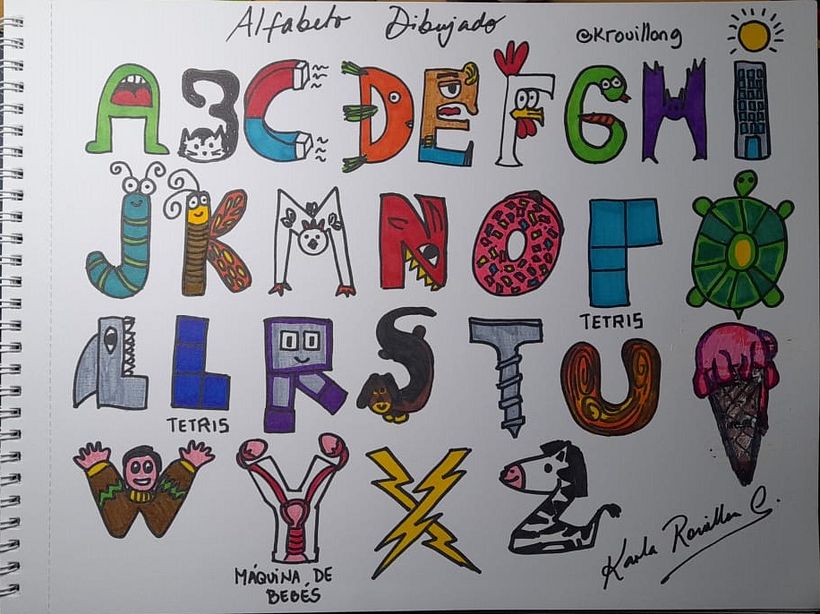 Alfabeto Dibujado
@Krouillong
A B C D E F G H I
J K M N O P Q
TETRIS
L L R S T U V
TETRIS
W Y X Z
MÁQUINA DE
BEBÉS
Karla Rouillon